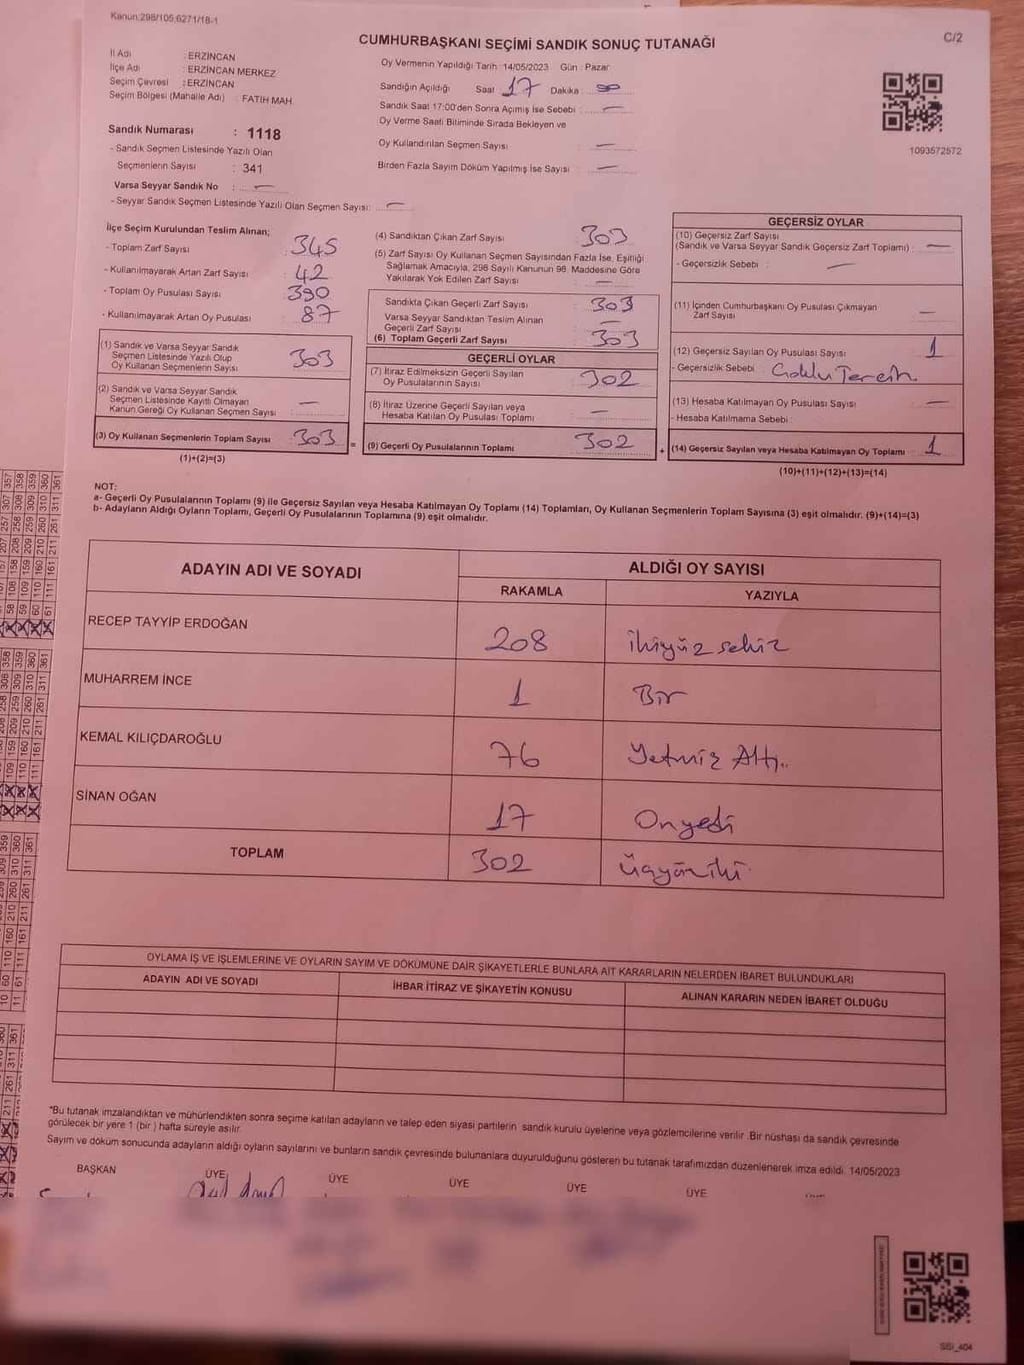 Kanun:298/105,6271/18-1
C/2
CUMHURBAŞKANI SEÇİMİ SANDIK SONUÇ TUTANAĞI
İl Adı : ERZİNCAN
İlçe Adı : ERZİNCAN MERKEZ
Seçim Çevresi : ERZİNCAN
Seçim Bölgesi (Mahalle Adı) : FATİH MAH.
Sandık Numarası : 1118
- Sandık Seçmen Listesinde Yazılı Olan
Seçmenlerin Sayısı : 341
Varsa Seyyar Sandık No : —
- Seyyar Sandık Seçmen Listesinde Yazılı Olan Seçmen Sayısı: —
Oy Vermenin Yapıldığı Tarih :14/05/2023 Gün : Pazar
Sandığın Açıldığı Saat 17 Dakika : 00
Sandık Saat 17:00'den Sonra Açımış İse Sebebi : —
Oy Verme Saati Bitiminde Sırada Bekleyen ve
Oy Kullandırılan Seçmen Sayısı —
Birden Fazla Sayım Döküm Yapılmış İse Sayısı —
1093572572
İlçe Seçim Kurulundan Teslim Alınan;
- Toplam Zarf Sayısı 345
- Kullanılmayarak Artan Zarf Sayısı : 42
- Toplam Oy Pusulası Sayısı 390
- Kullanılmayarak Artan Oy Pusulası : 87
(1) Sandık ve Varsa Seyyar Sandık
Seçmen Listesinde Yazılı Olup
Oy Kullanan Seçmenlerin Sayısı 303
(2) Sandık ve Varsa Seyyar Sandık
Seçmen Listesinde Kayıtlı Olmayan
Kanun Gereği Oy Kullanan Seçmen Sayısı —
(3) Oy Kullanan Seçmenlerin Toplam Sayısı 303
(1)+(2)=(3)
(4) Sandıktan Çıkan Zarf Sayısı 303
(5) Zarf Sayısı Oy Kullanan Seçmen Sayısından Fazla İse, Eşitliği
Sağlamak Amacıyla, 298 Sayılı Kanunun 98. Maddesine Göre
Yakılarak Yok Edilen Zarf Sayısı —
Sandıkta Çıkan Geçerli Zarf Sayısı 303
Varsa Seyyar Sandıktan Teslim Alınan
Geçerli Zarf Sayısı —
(6) Toplam Geçerli Zarf Sayısı 303
GEÇERLİ OYLAR
(7) İtiraz Edilmeksizin Geçerli Sayılan
Oy Pusulalarının Sayısı 302
(8) İtiraz Üzerine Geçerli Sayılan veya
Hesaba Katılan Oy Pusulası Toplamı —
= (9) Geçerli Oy Pusulalarının Toplamı 302
GEÇERSİZ OYLAR
(10) Geçersiz Zarf Sayısı
(Sandık ve Varsa Seyyar Sandık Geçersiz Zarf Toplamı) : —
- Geçersizlik Sebebi : —
(11) İçinden Cumhurbaşkanı Oy Pusulası Çıkmayan
Zarf Sayısı —
(12) Geçersiz Sayılan Oy Pusulası Sayısı 1
- Geçersizlik Sebebi : Coklu Tercih
(13) Hesaba Katılmayan Oy Pusulası Sayısı —
- Hesaba Katılmama Sebebi :
+ (14) Geçersiz Sayılan veya Hesaba Katılmayan Oy Toplamı 1
(10)+(11)+(12)+(13)=(14)
NOT:
a- Geçerli Oy Pusulalarının Toplamı (9) ile Geçersiz Sayılan veya Hesaba Katılmayan Oy Toplamı (14) Toplamları, Oy Kullanan Seçmenlerin Toplam Sayısına (3) eşit olmalıdır. (9)+(14)=(3)
b- Adayların Aldığı Oyların Toplamı, Geçerli Oy Pusulalarının Toplamına (9) eşit olmalıdır.
ADAYIN ADI VE SOYADI
ALDIĞI OY SAYISI
RAKAMLA YAZIYLA
RECEP TAYYİP ERDOĞAN 208 ikiyüz sekiz
MUHARREM İNCE 1 Bir
KEMAL KILIÇDAROĞLU 76 Yetmiz Altı..
SİNAN OĞAN 17 Onyedi
TOPLAM 302 üçyüziki
OYLAMA İŞ VE İŞLEMLERİNE VE OYLARIN SAYIM VE DÖKÜMÜNE DAİR ŞİKAYETLERLE BUNLARA AİT KARARLARIN NELERDEN İBARET BULUNDUKLARI
ADAYIN ADI VE SOYADI İHBAR İTİRAZ VE ŞİKAYETİN KONUSU ALINAN KARARIN NEDEN İBARET OLDUĞU
*Bu tutanak imzalandıktan ve mühürlendikten sonra seçime katılan adayların ve talep eden siyasi partilerin sandık kurulu üyelerine veya gözlemcilerine verilir .Bir nüshası da sandık çevresinde
görülecek bir yere 1 (bir ) hafta süreyle asılır.
Sayım ve döküm sonucunda adayların aldığı oyların sayılarını ve bunların sandık çevresinde bulunanlara duyurulduğunu gösteren bu tutanak tarafımızdan düzenlenerek imza edildi. 14/05/2023
BAŞKAN ÜYE ÜYE ÜYE ÜYE ÜYE